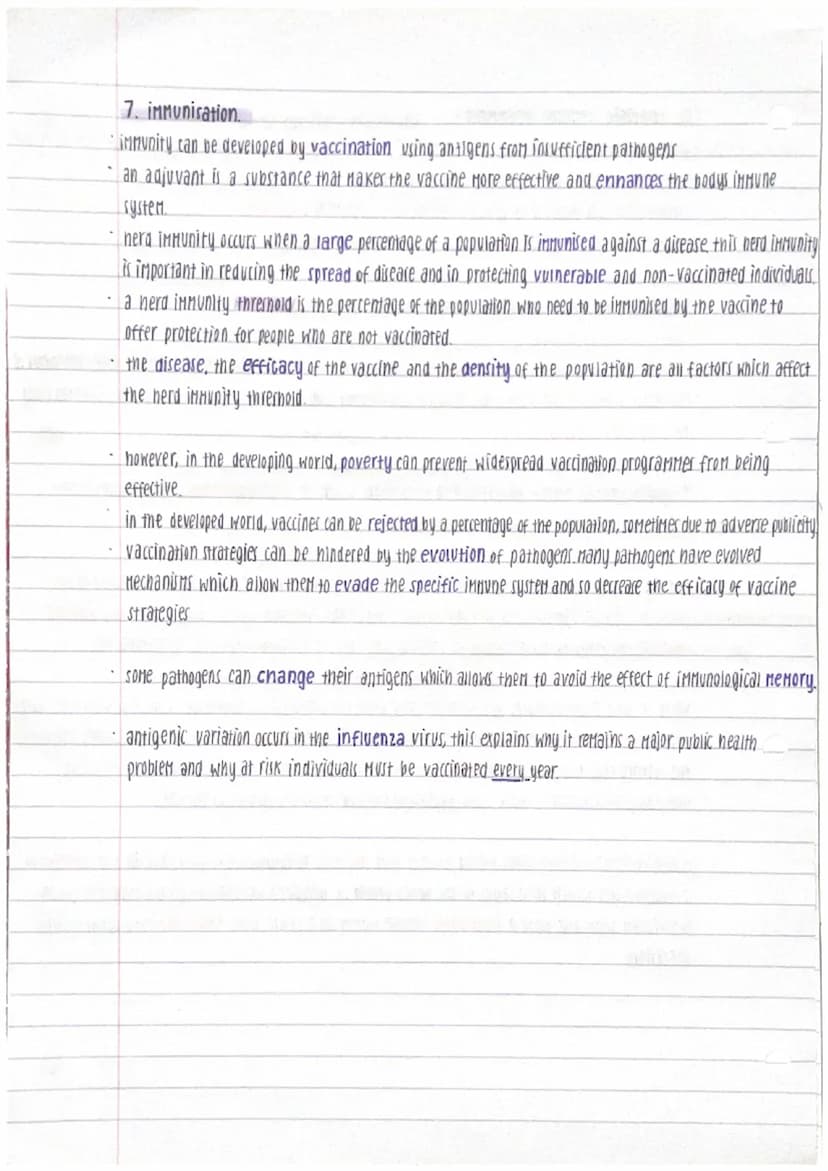 7. immunisation.
· immunity can be developed by vaccination using antigens from insufficient pathogens
· an adjuvant is a substance that makes the vaccine more effective and enhances the bodys immune
system.
· herd immunity occurs when a large percentage of a population is immunised against a disease. this herd immunity
is important in reducing the spread of disease and in protecting vulnerable and non-vaccinated individuals.
· a herd immunity threshold is the percentage of the population who need to be immunised by the vaccine to
offer protection for people who are not vaccinated.
· the disease, the efficacy of the vaccine and the density of the population are all factors which affect
the herd immunity threshold.
· however, in the developing world, poverty can prevent widespread vaccination programmes from being
effective.
· in the developed world, vaccines can be rejected by a percentage of the population, sometimes due to adverse publicity
· vaccination strategies can be hindered by the evolution of pathogens. many pathogens have evolved
mechanisms which allow them to evade the specific immune system and so decrease the efficacy of vaccine
strategies
· some pathogens can change their antigens which allows them to avoid the effect of immunological memory.
· antigenic variation occurs in the influenza virus, this explains why it remains a major public health
problem and why at risk individuals must be vaccinated every year.